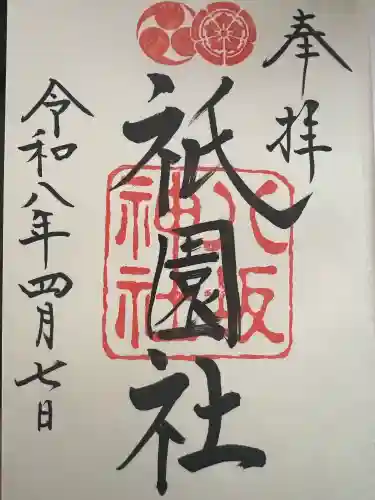 奉拝
祇園社
八坂
神社
令和八年四月七日